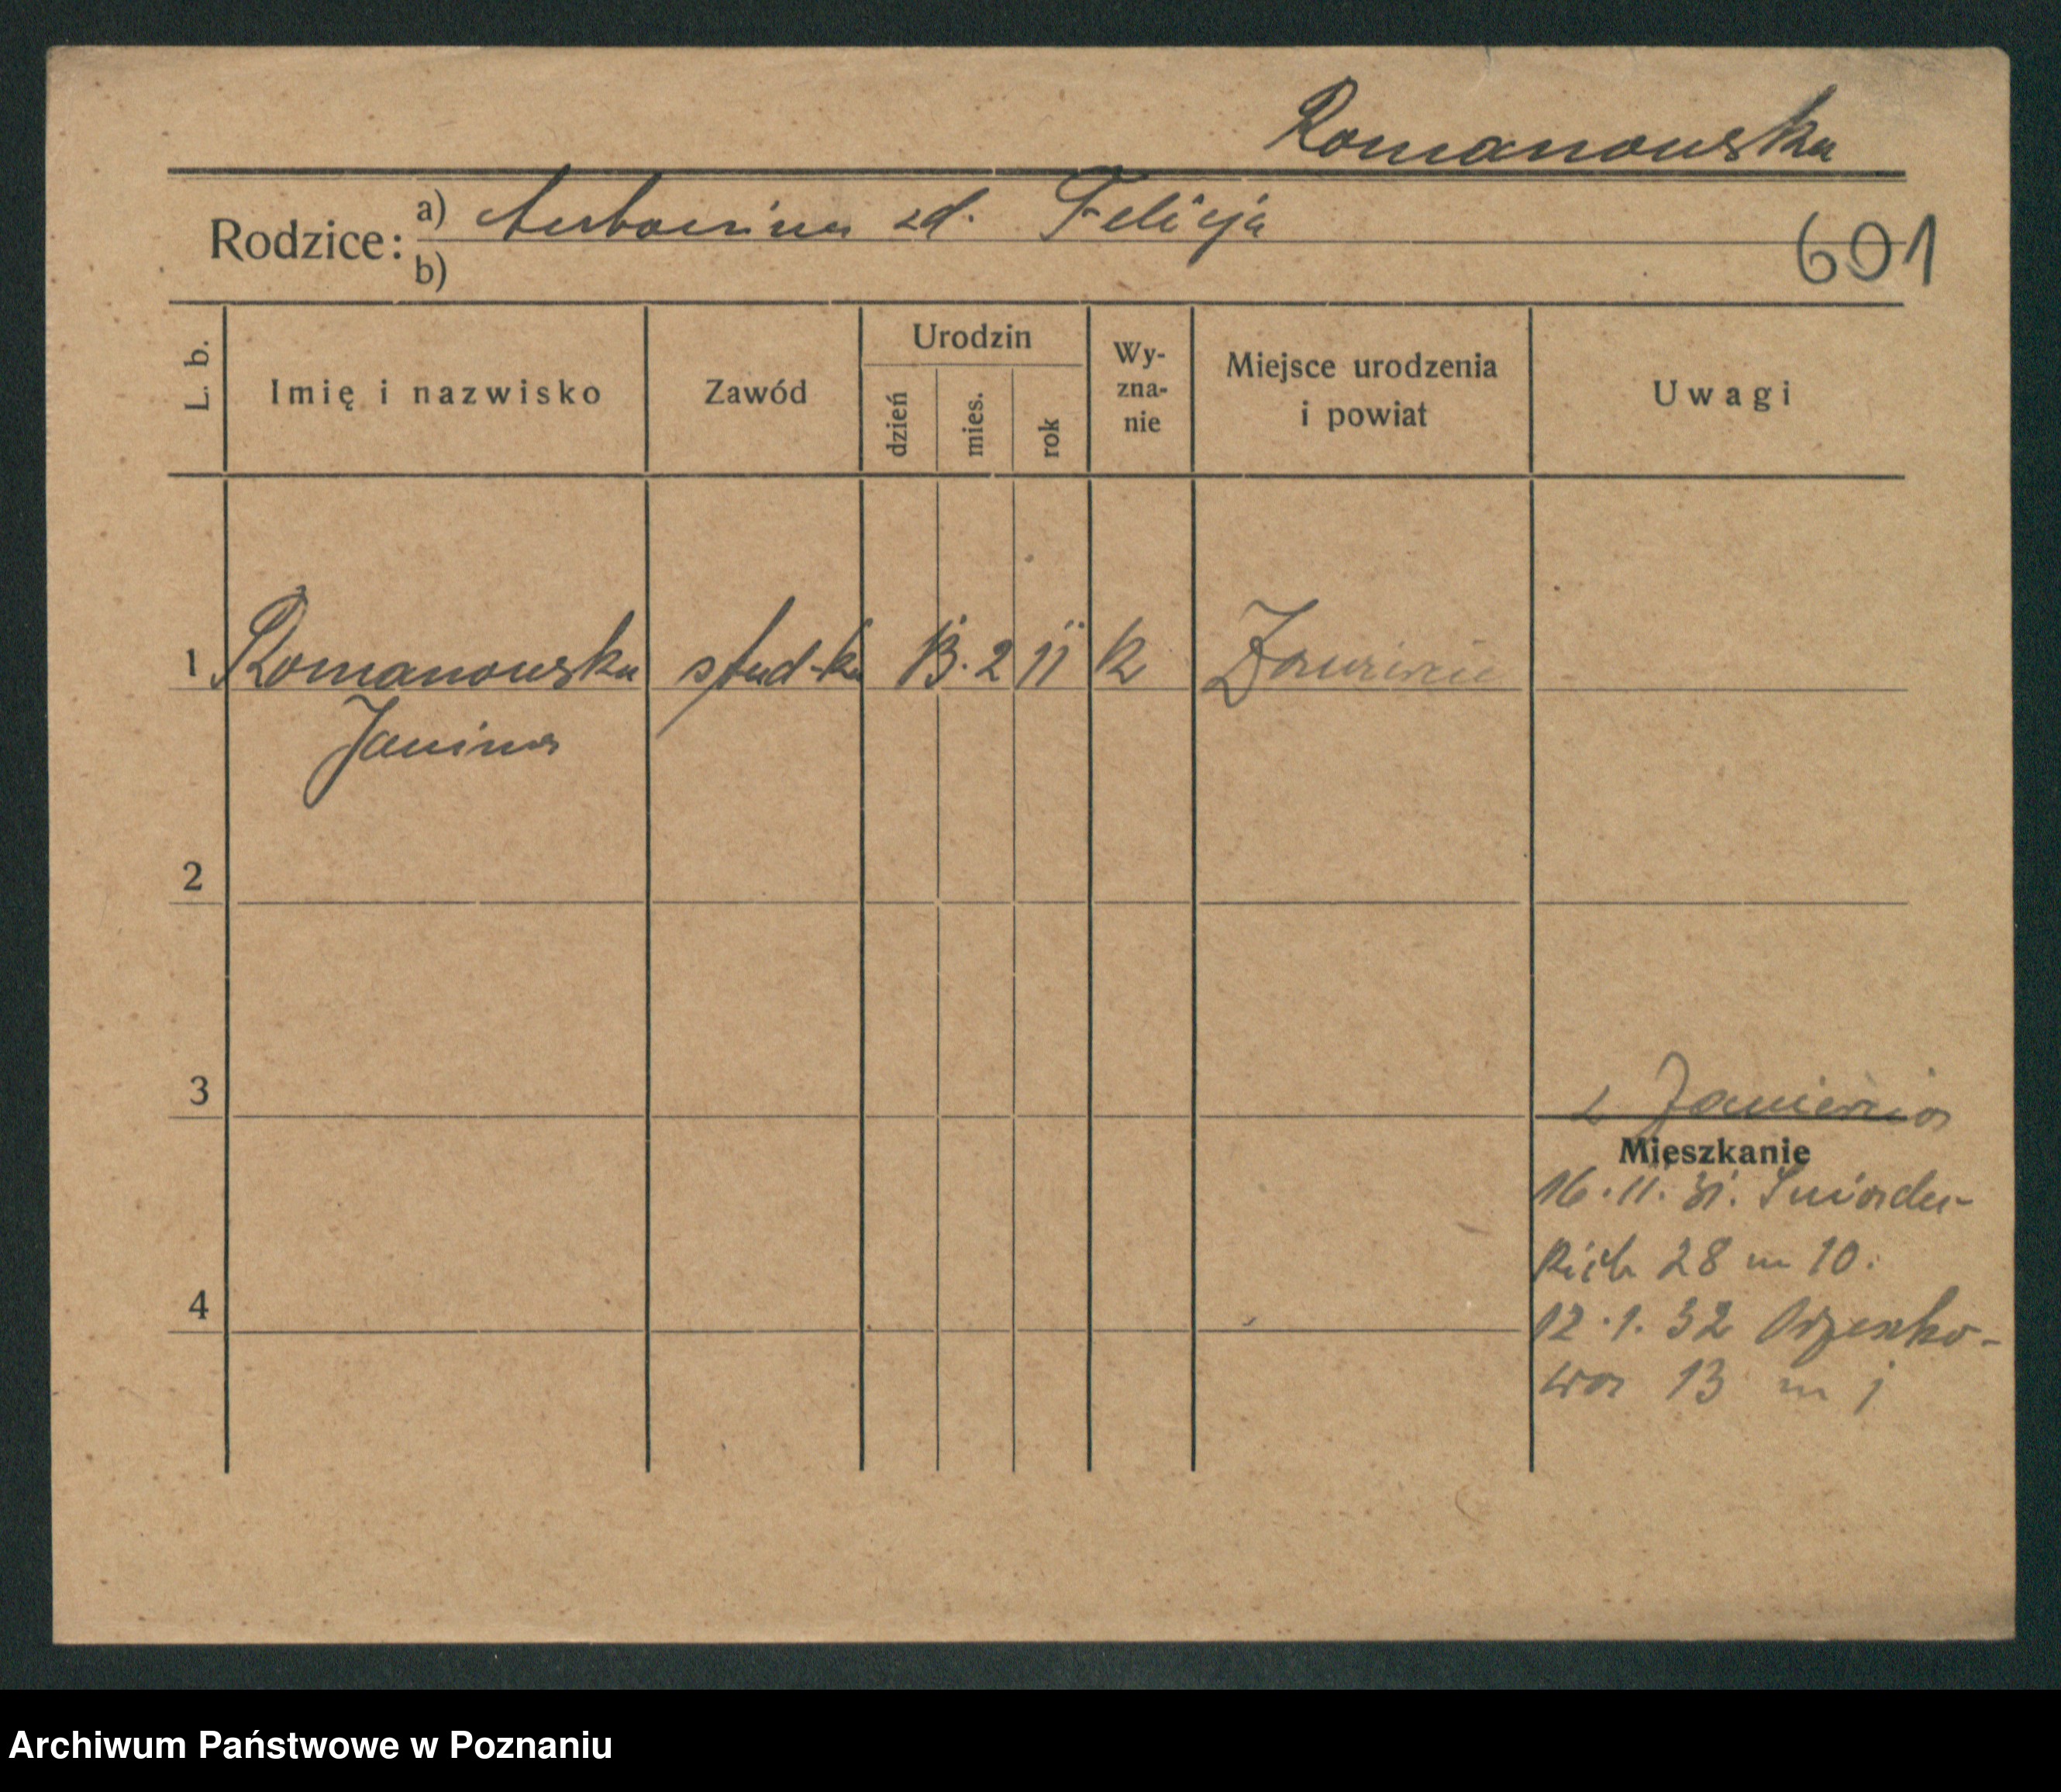 Romanowska
Rodzice: a) zd. Felicja
601
b)
L. b.
Imię i nazwisko
Zawód
Urodzin
dzień
mies.
rok
Wy-
zna-
nie
Miejsce urodzenia
i powiat
Uwagi
1 Romanowska stud-ka 13. 2 11 k
Janina
2
3
z Zawiercia
Mieszkanie
16.11.31. Śniadec-
kich 28 m 10.
4
12.1.32 Orzeszko-
wa 13 m 1
Archiwum Państwowe w Poznaniu